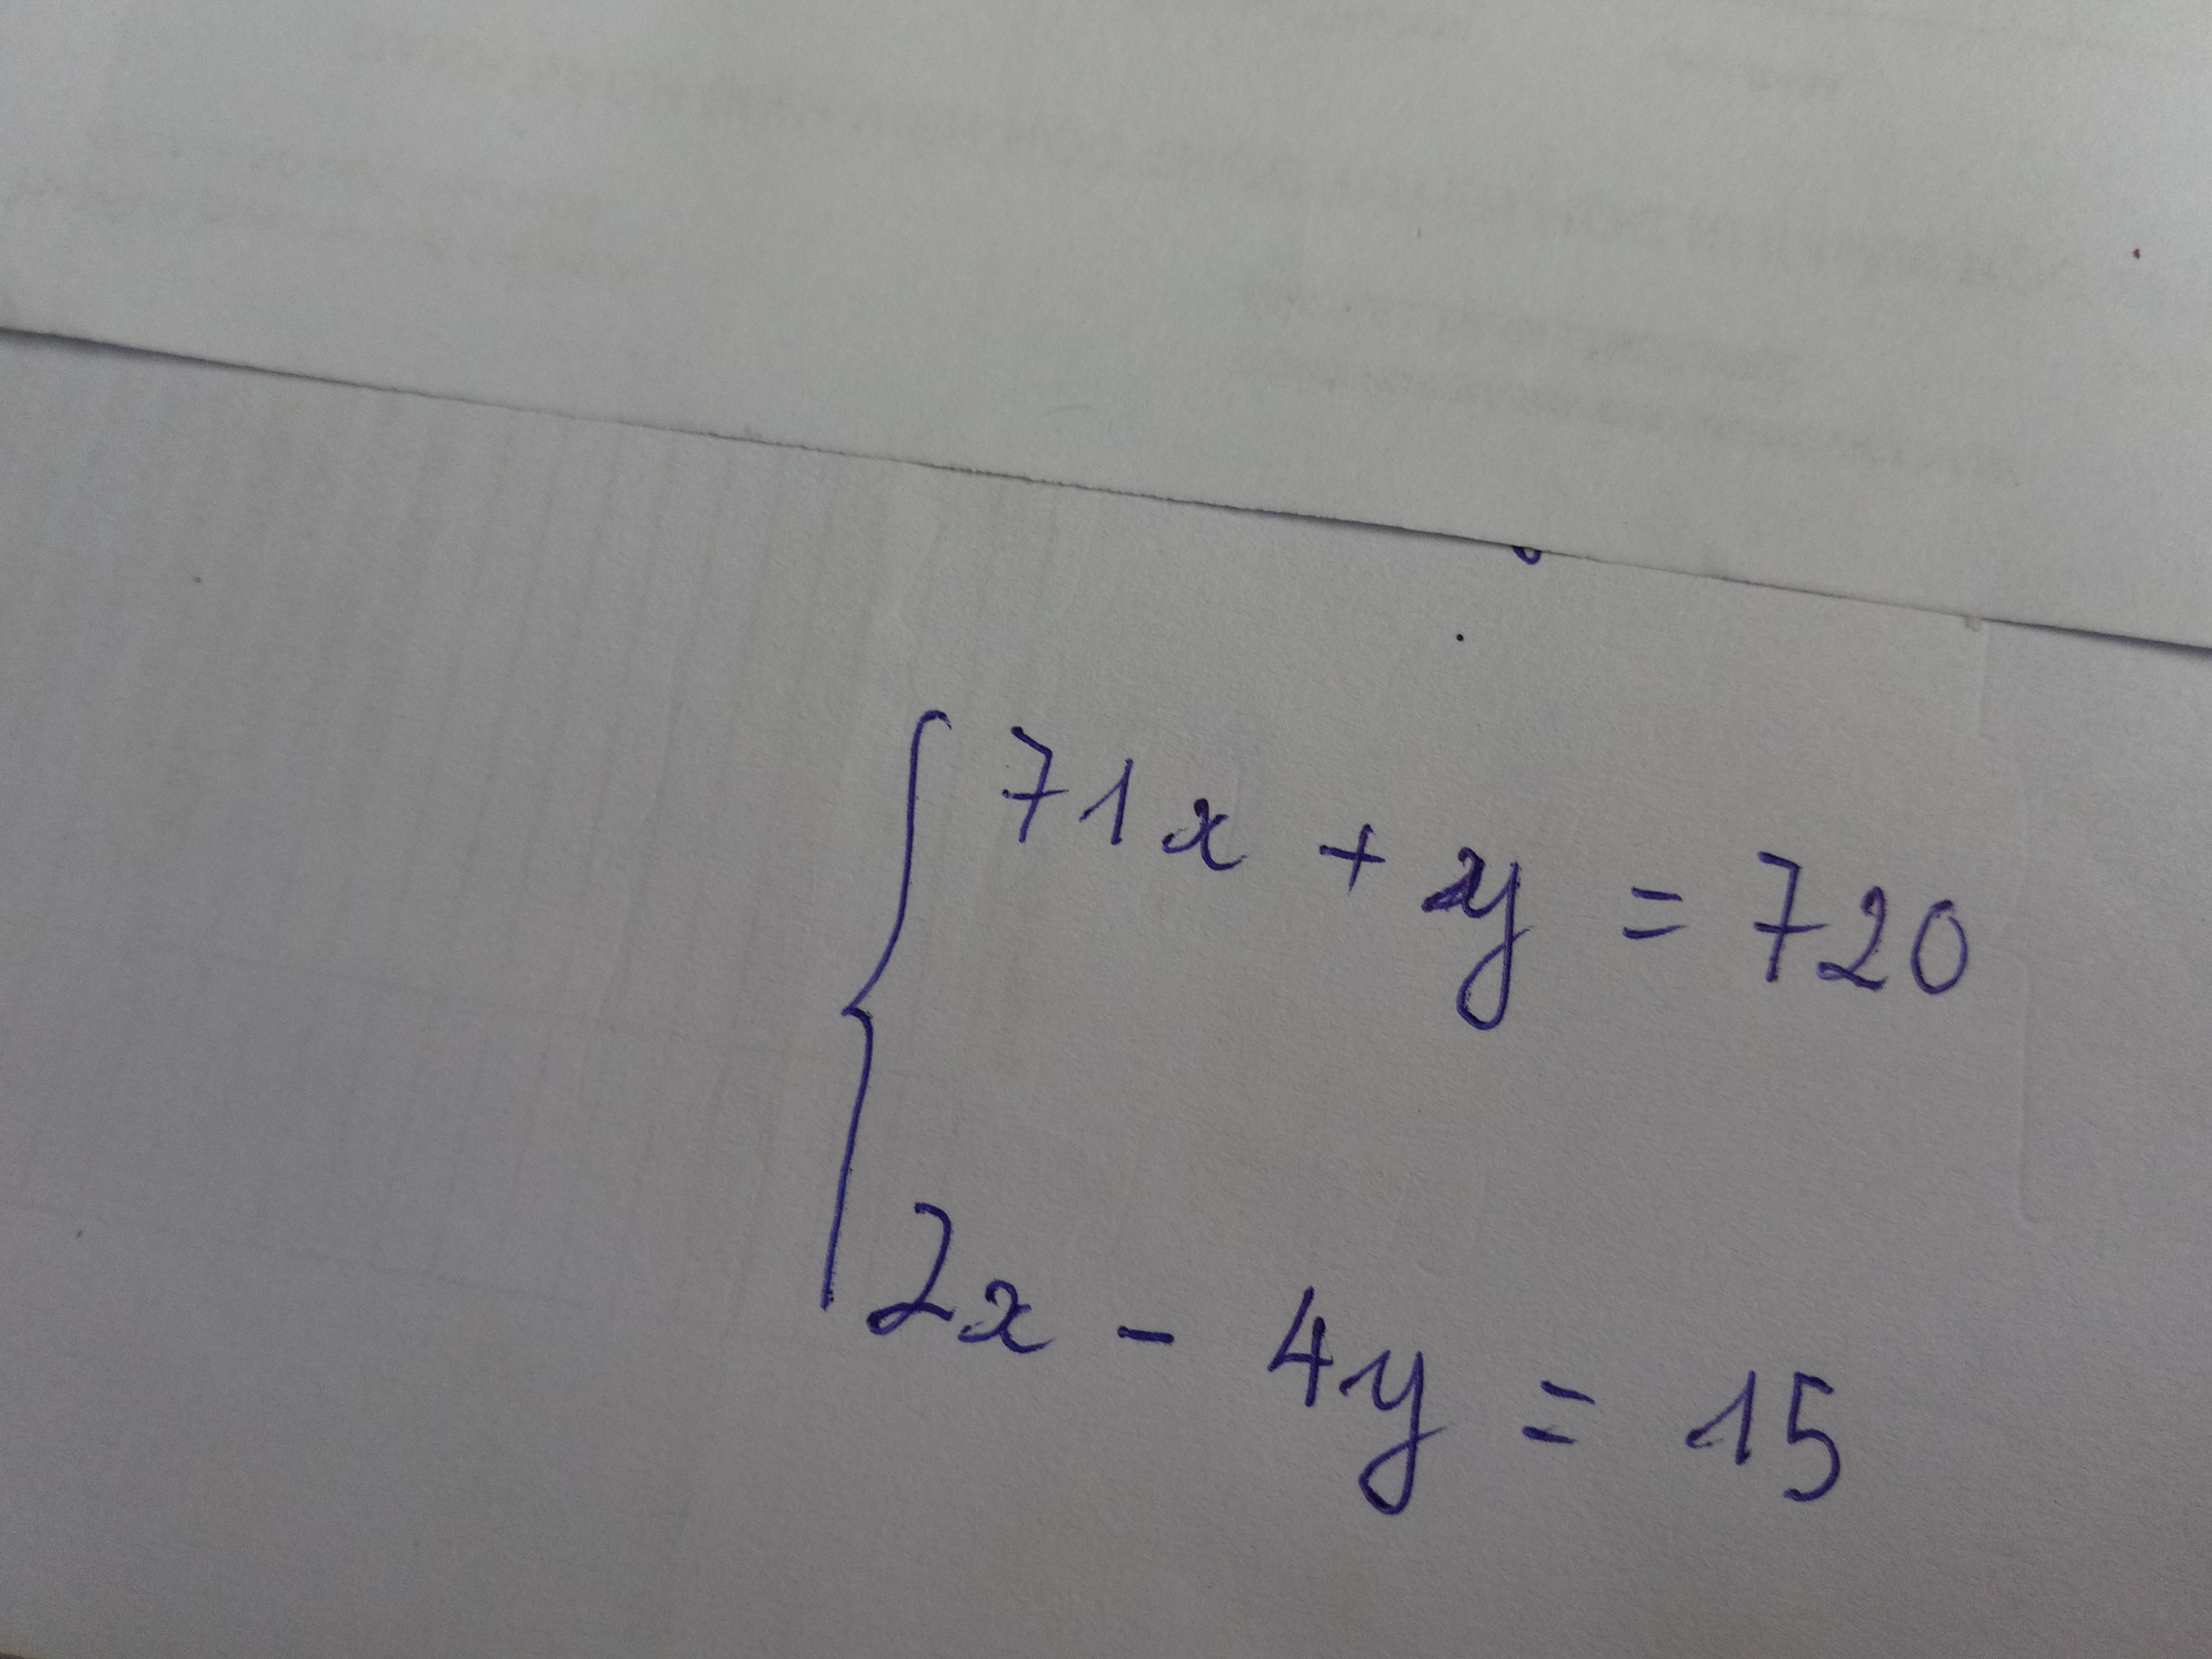 71x + y = 720
2x - 4y = 15